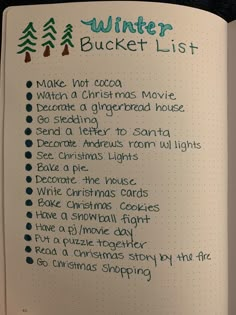 Winter
Bucket List
Make hot cocoa
Watch a Christmas Movie
Decorate a gingerbread house
Go sledding
Send a letter to Santa
Decorate Andrew's room w/ lights
See Christmas Lights
Bake a pie
Decorate the house
Write Christmas cards
Bake Christmas Cookies
Have a snowball fight
Have a pj/movie day
Put a puzzle together
Read a Christmas story by the fire
Go Christmas Shopping